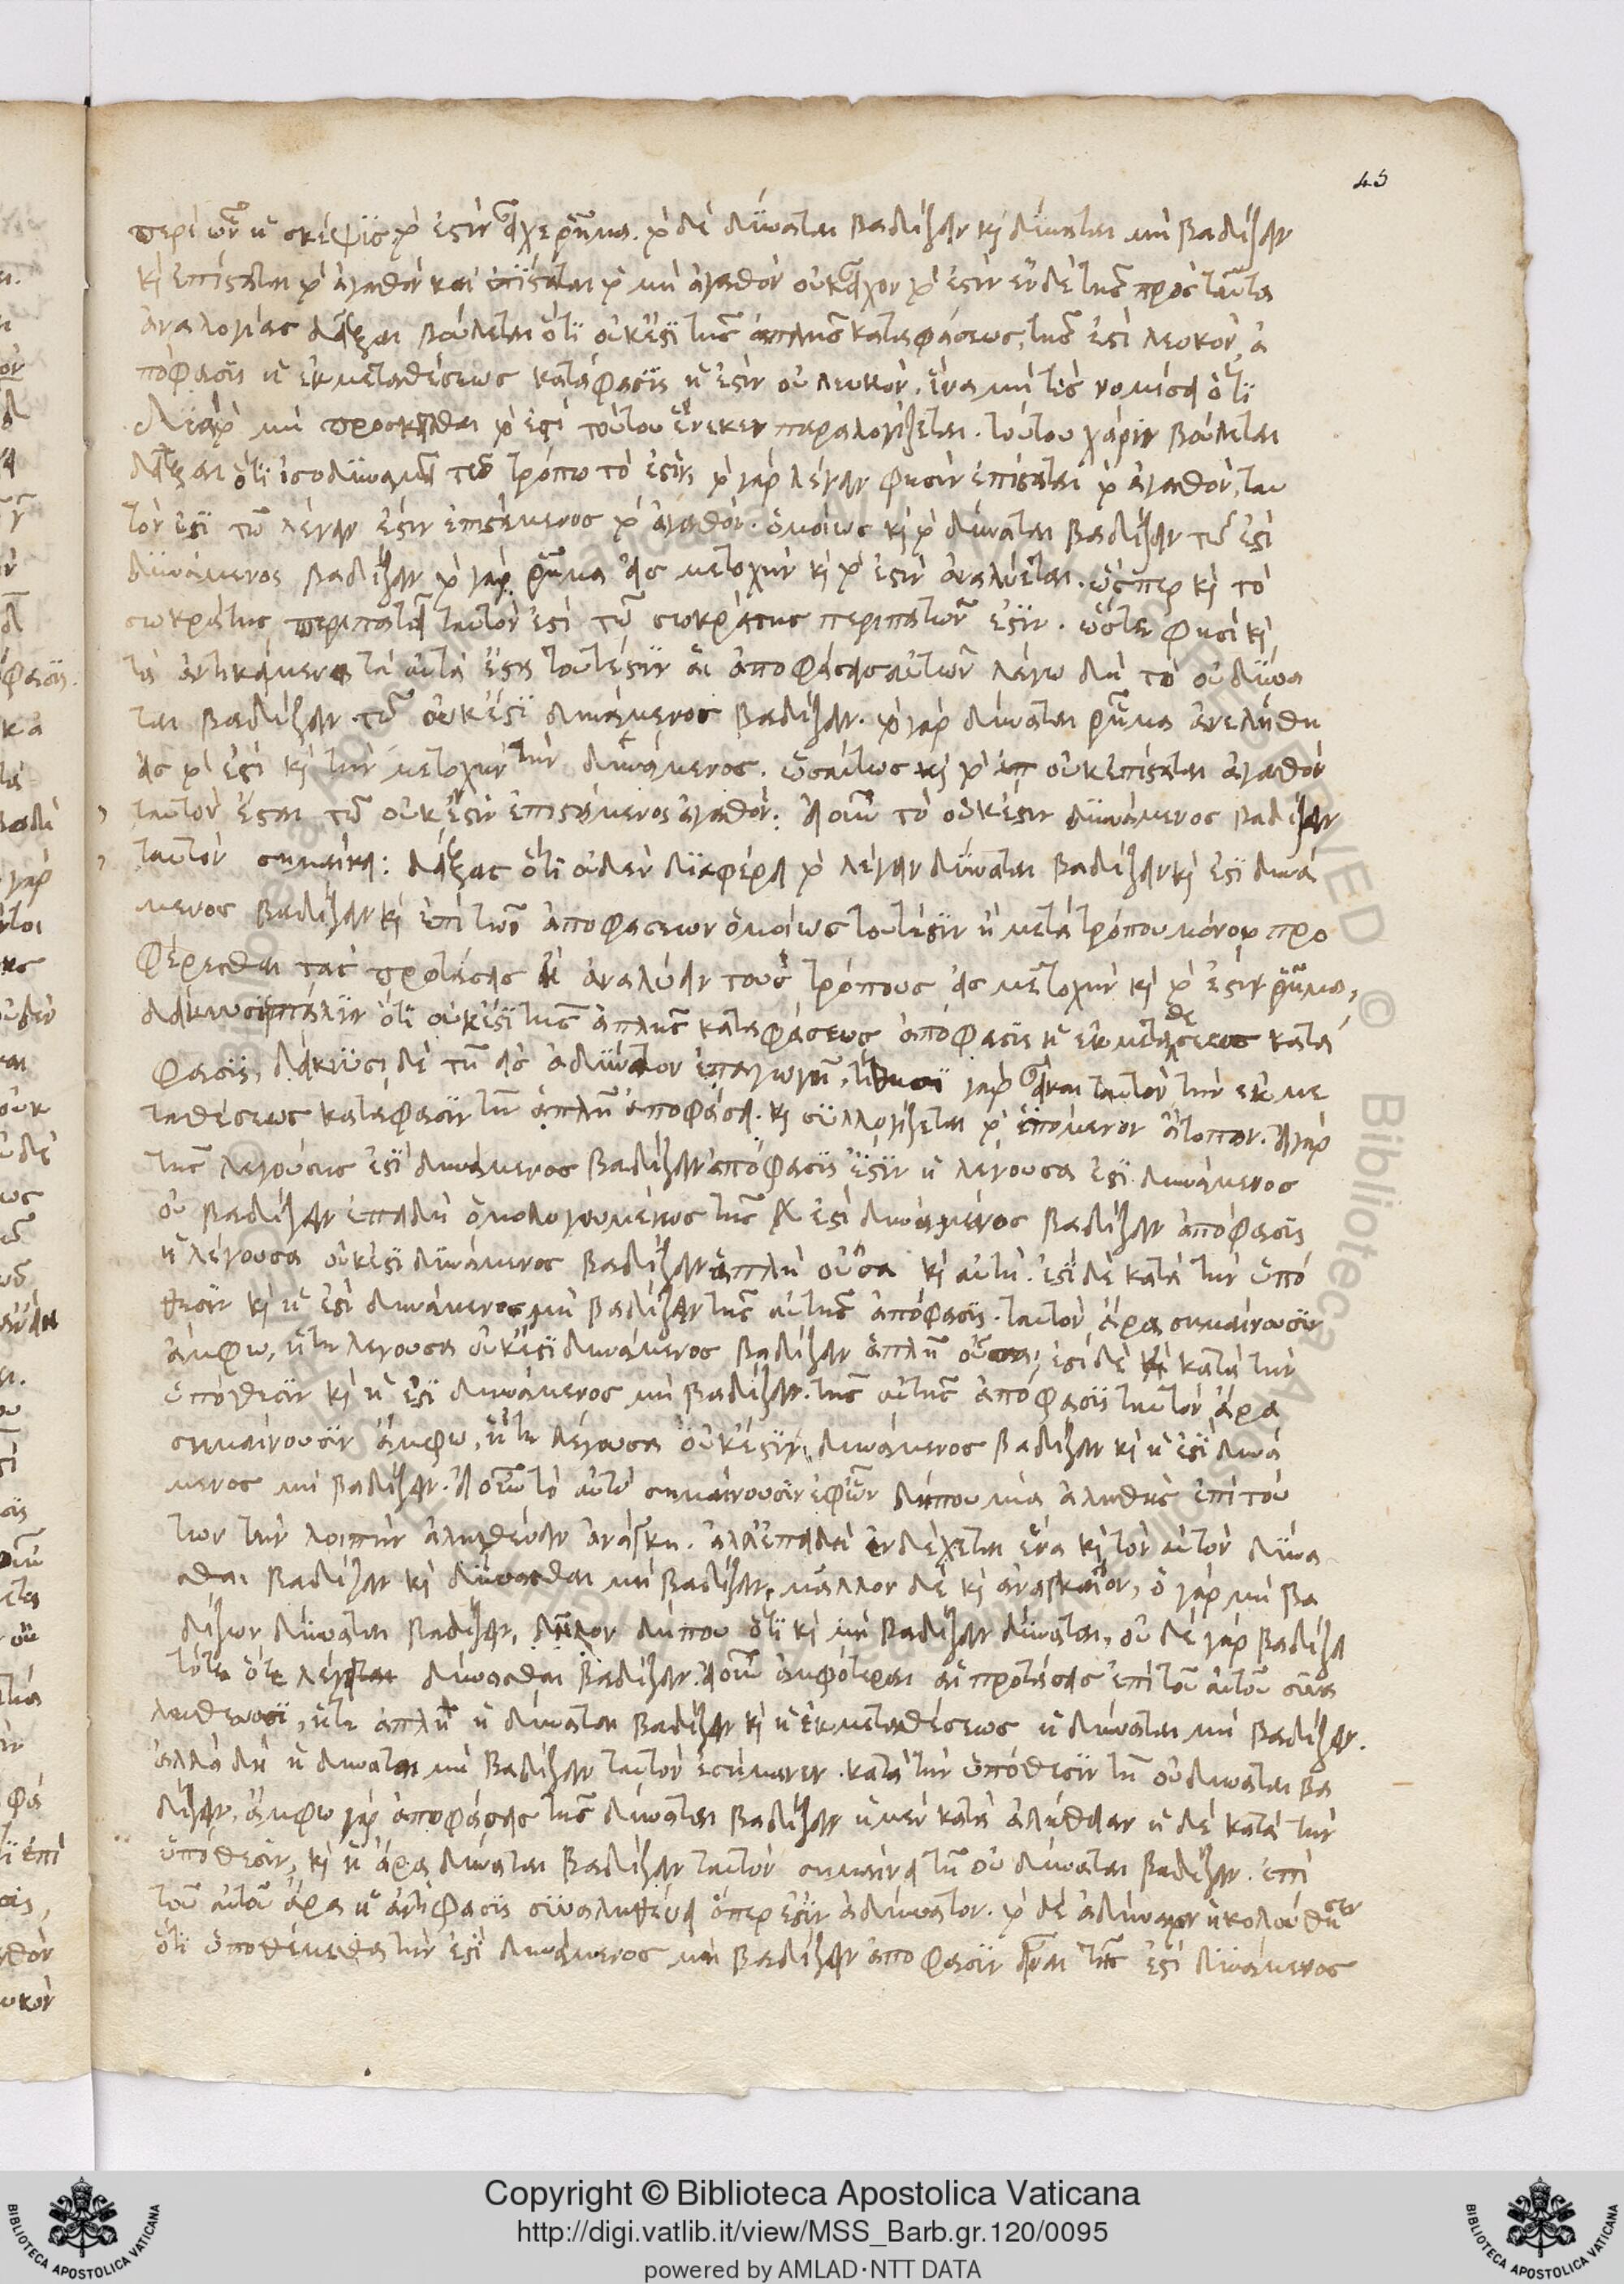 45
περὶ ὧν ἡ σκέψις τὸ ἐστὶν εἶχε ῥῆμα. τὸ δὲ δύναται βαδίζειν κὶ δύναται μὴ βαδίζειν
κὶ ἐπίσταται τὸ ἀγαθὸν καὶ ἐπίσταται τὸ μὴ ἀγαθὸν οὐκ εἶχον τὸ ἐστὶν ἐν δὲ τῆς πρὸς ταῦτα
ἀναλογίας δεῖξαι βούλεται ὅτι οὐκ ἔστι τῆς ἁπλῆς καταφάσεως, τῆς ἐστὶ λευκὸν, ἀ
πόφασις ἡ ἐκ μεταθέσεως κατάφασις ἡ ἐστὶν οὐ λευκὸν. ἵνα μὴ τὶς νομίσῃ ὅτι
διὰ τὸ μὴ προσκεῖσθαι τὸ ἐστὶ τούτου ἕνεκεν παραλογίζεται. τούτου χάριν βούλεται
δεῖξαι ὅτι ἰσοδυναμεῖ τῶ τρόπω τὸ ἐστὶν, τὸ γὰρ λέγειν φησὶν ἐπίσταται τὸ ἀγαθὸν, ταυ
τόν ἐστι τῶ λέγειν ἐστὶν ἐπιστάμενος τὸ ἀγαθὸν. ὁμοίως κὶ τὸ δύναται βαδίζειν τῶ ἐστὶ
δυνάμενος βαδίζειν τὸ γὰρ ῥῆμα εἰς μετοχὴν κὶ τὸ ἐστὶν ἀναλύεται. ὥσπερ κὶ τὸ
σωκράτης περιπατεῖ ταυτὸν ἐστὶ τῶ σωκράτης περιπατῶν ἐστίν. ὥστε φησὶ κὶ
τὰ ἀντικείμενα τὰ αὐτὰ ἔσται τουτέστιν αἱ ἀποφάσεις αὐτῶν λέγω δὴ τὸ οὐ δύνα
ται βαδίζειν τῶ οὐκ ἔστι δυνάμενος βαδίζειν. τὸ γὰρ δύναται ῥῆμα ἀνελύθη
εἰς τὸ ἐστὶ κὶ τὴν μετοχὴν τὴν δυνάμενος. ὡσαύτως κὶ τὸ οὐκ ἐπίσταται ἀγαθὸν
ταυτὸν ἔσται τῶ οὐκ ἔστιν ἐπιστάμενος ἀγαθὸν: εἰ οὖν τὸ οὐκ ἔστιν δυνάμενος βαδίζειν
ταυτὸν σημαίνει: δείξας ὅτι οὐδὲν διαφέρει τὸ λέγειν δύναται βαδίζειν κὶ ἐστὶ δυνά
μενος βαδίζειν κὶ ἐπὶ τῶν ἀποφάσεων ὁμοίως τουτέστιν ἢ μετὰ τρόπου μόνου προ
φέρεσθαι τὰς προτάσεις ἢ ἀναλύειν τοὺς τρόπους εἰς μετοχὴν κὶ τὸ ἐστὶν ῥῆμα,
δείκνυσι πάλιν ὅτι οὐκ ἔστι τῆς ἁπλῆς καταφάσεως ἀπόφασις ἡ ἐκ μεταθέσεως κατά
φασις, δείκνυσι δὲ τῆ εἰς ἀδύνατον ἐπαγωγῆ, τίθησι γὰρ εἶναι ταυτὸν τὴν ἐκ με
ταθέσεως κατάφασιν τῆ ἁπλῆ ἀποφάσει. κὶ συλλογίζεται τὸ ἑπόμενον ἄτοπον. εἰ γὰρ
τῆς λεγούσης ἐστὶ δυνάμενος βαδίζειν ἀπόφασις ἐστὶν ἡ λέγουσα ἐστὶ δυνάμενος
οὐ βαδίζειν ἐπειδὴ ὁμολογουμένως τῆς ἐστὶ δυνάμενος βαδίζειν ἀπόφασις
ἡ λέγουσα οὐκ ἔστι δυνάμενος βαδίζειν ἁπλῆ οὖσα κὶ αὐτὴ. ἐστὶ δὲ κατὰ τὴν ὑπό
θεσιν κὶ ἡ ἐστὶ δυνάμενος μὴ βαδίζειν τῆς αὐτῆς ἀπόφασις. ταυτὸν ἄρα σημαίνουσιν
ἄμφω, ἥτε λέγουσα οὐκ ἔστι δυνάμενος βαδίζειν ἁπλῆ οὖσα, ἐστὶ δὲ κατὰ τὴν
ὑπόθεσιν κὶ ἡ ἐστὶ δυνάμενος μὴ βαδίζειν. τῆς αὐτῆς ἀπόφασις ταυτὸν ἄρα
σημαίνουσιν ἄμφω, ἥτε λέγουσα οὐκ ἔστιν δυνάμενος βαδίζειν κὶ ἡ ἐστὶ δυνά
μενος μὴ βαδίζειν. εἰ οὖν τὸ αὐτὸ σημαίνουσιν ἐφ' ὧν δήπου μία ἀληθὴς ἐπὶ τού
των τὴν λοιπὴν ἀληθεύειν ἀνάγκη. ἀλλ' ἐπειδὴ ἐνδέχεται ἕνα κὶ τὸν αὐτὸν δύνα
σθαι βαδίζειν κὶ δύνασθαι μὴ βαδίζειν, μᾶλλον δὲ κὶ ἀναγκαῖον, ὁ γὰρ μὴ βα
δίζων δύναται βαδίζειν, δῆλον δήπου ὅτι κὶ μὴ βαδίζειν δύναται, οὐδὲ γὰρ βαδίζει
τότε ὅτε λέγεται δύνασθαι βαδίζειν. εἰ οὖν ἀμφότεραι αἱ προτάσεις ἐπὶ τοῦ αὐτοῦ συνα
ληθεύουσι, ἥτε ἁπλῆ ἡ δύναται βαδίζειν κὶ ἡ ἐκ μεταθέσεως ἡ δύναται μὴ βαδίζειν.
ἀλλὰ δὴ ἡ δύναται μὴ βαδίζειν ταυτὸν ἐσήμαινεν. κατὰ τὴν ὑπόθεσιν τῆ οὐ δύναται βα
δίζειν. ἄμφω γὰρ ἀποφάσεις τῆς δύναται βαδίζειν ἡ μὲν κατὰ ἀλήθειαν ἡ δὲ κατὰ τὴν
ὑπόθεσιν, κὶ ἡ ἄρα δύναται βαδίζειν ταυτὸν σημαίνει τῆ οὐ δύναται βαδίζειν. ἐπὶ
τοῦ αὐτοῦ ἄρα ἡ ἀντίφασις συναληθεύει ὅπερ ἐστὶν ἀδύνατον. τὸ δὲ ἀδύνατον ἠκολούθησεν
ὅτι ὑποθέμεθα τὴν ἐστὶ δυνάμενος μὴ βαδίζειν ἀπόφασιν εἶναι τῆς ἐστὶ δυνάμενος
Copyright © Biblioteca Apostolica Vaticana
http://digi.vatlib.it/view/MSS_Barb.gr.120/0095
powered by AMLAD·NTT DATA
BIBLIOTECA APOSTOLICA VATICANA
BIBLIOTECA APOSTOLICA VATICANA